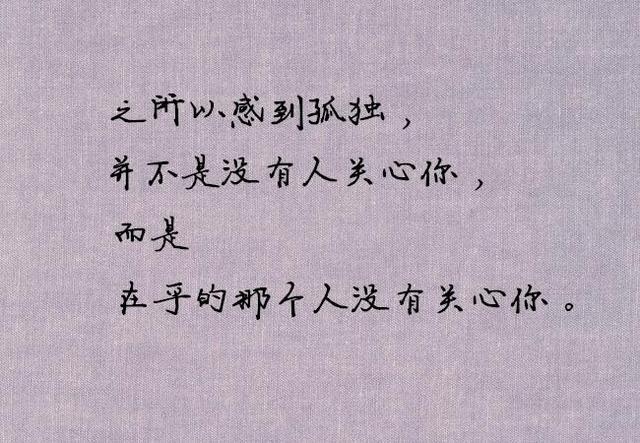 之所以感到孤独，
并不是没有人关心你，
而是
在乎的那个人没有关心你。